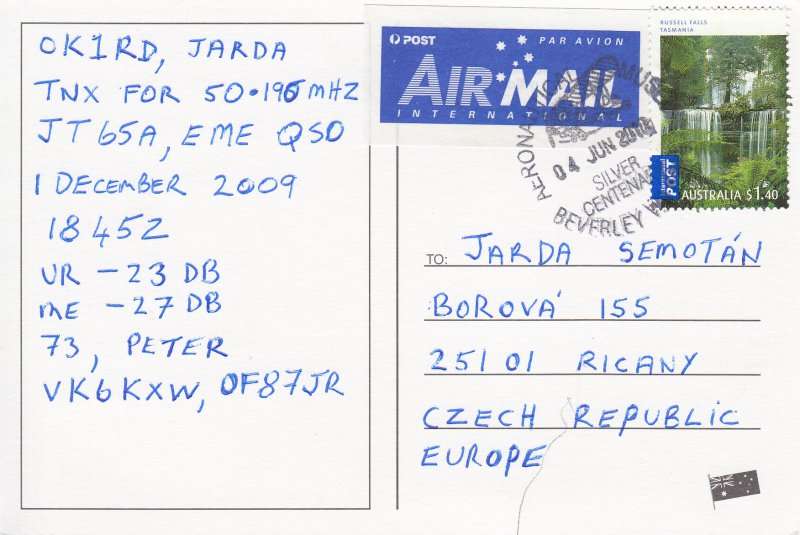 OK1RD, JARDA
TNX FOR 50.196 MHZ
JT65A, EME QSO
1 DECEMBER 2009
1845Z
UR -23 DB
ME -27 DB
73, PETER
VK6KXW, OF87JR
POST PAR AVION
AIR MAIL
INTERNATIONAL
RUSSELL FALLS
TASMANIA
International POST
AUSTRALIA $1.40
AERONAUTICAL MUSEUM
04 JUN
SILVER
CENTENARY
BEVERLEY
TO: JARDA SEMOTÁN
BOROVÁ 155
25101 RICANY
CZECH REPUBLIC
EUROPE